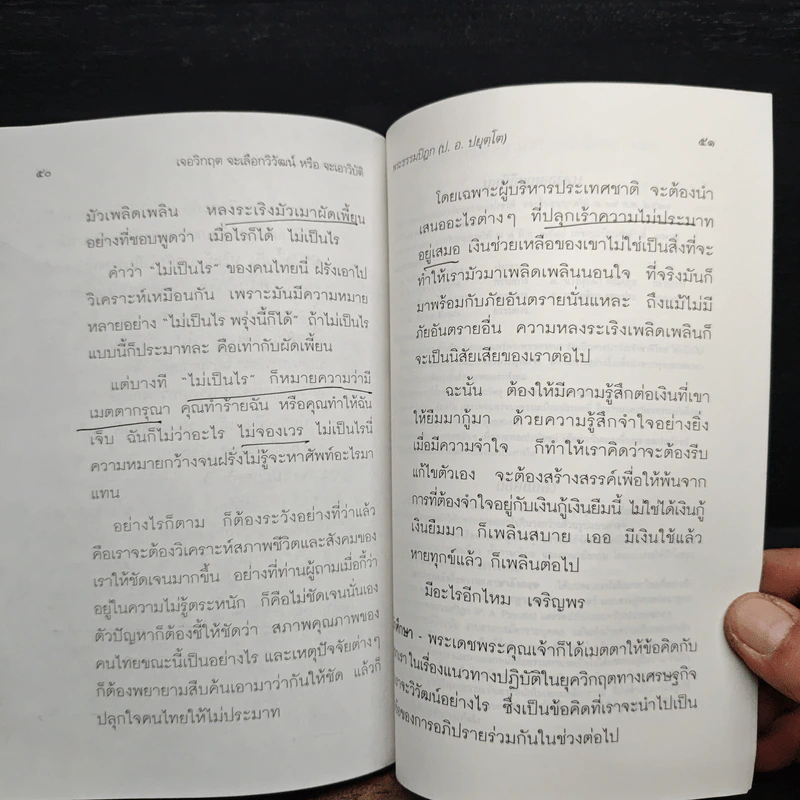 ๕๐
เจอวิกฤต จะเลือกวิวัฒน์ หรือ จะเอาวิบัติ
มัวเพลิดเพลิน หลงระเริงมัวเมาผัดเพี้ยน
อย่างที่ชอบพูดว่า เมื่อไรก็ได้ ไม่เป็นไร
คำว่า "ไม่เป็นไร" ของคนไทยนี่ ฝรั่งเอาไป
วิเคราะห์เหมือนกัน เพราะมันมีความหมาย
หลายอย่าง "ไม่เป็นไร พรุ่งนี้ก็ได้" ถ้าไม่เป็นไร
แบบนี้ก็ประมาทละ คือเท่ากับผัดเพี้ยน
แต่บางที "ไม่เป็นไร" ก็หมายความว่ามี
เมตตากรุณา คุณทำร้ายฉัน หรือคุณทำให้ฉัน
เจ็บ ฉันก็ไม่ว่าอะไร ไม่จองเวร ไม่เป็นไรนี่
ความหมายกว้างจนฝรั่งไม่รู้จะหาศัพท์อะไรมา
แทน
อย่างไรก็ตาม ก็ต้องระวังอย่างที่ว่าแล้ว
คือเราจะต้องวิเคราะห์สภาพชีวิตและสังคมของ
เราให้ชัดเจนมากขึ้น อย่างที่ท่านผู้ถามเมื่อกี้ว่า
อยู่ในความไม่รู้ตระหนัก ก็คือไม่ชัดเจนนั่นเอง
ตัวปัญหาก็ต้องชี้ให้ชัดว่า สภาพคุณภาพของ
คนไทยขณะนี้เป็นอย่างไร และเหตุปัจจัยต่างๆ
ก็ต้องพยายามสืบค้นเอามาว่ากันให้ชัด แล้วก็
ปลุกใจคนไทยให้ไม่ประมาท
พระธรรมปิฎก (ป. อ. ปยุตฺโต)
๕๑
โดยเฉพาะผู้บริหารประเทศชาติ จะต้องนำ
เสนออะไรต่างๆ ที่ปลุกเร้าความไม่ประมาท
อยู่เสมอ เงินช่วยเหลือของเขาไม่ใช่เป็นสิ่งที่จะ
ทำให้เรามัวมาเพลิดเพลินนอนใจ ที่จริงมันก็
มาพร้อมกับภัยอันตรายนั่นแหละ ถึงแม้ไม่มี
ภัยอันตรายอื่น ความหลงระเริงเพลิดเพลินก็
จะเป็นนิสัยเสียของเราต่อไป
ฉะนั้น ต้องให้มีความรู้สึกต่อเงินที่เขา
ให้ยืมมากู้มา ด้วยความรู้สึกจำใจอย่างยิ่ง
เมื่อมีความจำใจ ก็ทำให้เราคิดว่าจะต้องรีบ
แก้ไขตัวเอง จะต้องสร้างสรรค์เพื่อให้พ้นจาก
การที่ต้องจำใจอยู่กับเงินกู้เงินยืมนี้ ไม่ใช่ได้เงินกู้
เงินยืมมา ก็เพลินสบาย เออ มีเงินใช้แล้ว
หายทุกข์แล้ว ก็เพลินต่อไป
มีอะไรอีกไหม เจริญพร
ศึกษา - พระเดชพระคุณเจ้าก็ได้เมตตาให้ข้อคิดกับ
ในเรื่องแนวทางปฏิบัติในยุควิกฤตทางเศรษฐกิจ
จะวิวัฒน์อย่างไร ซึ่งเป็นข้อคิดที่เราจะนำไปเป็น
ของการอภิปรายร่วมกันในช่วงต่อไป